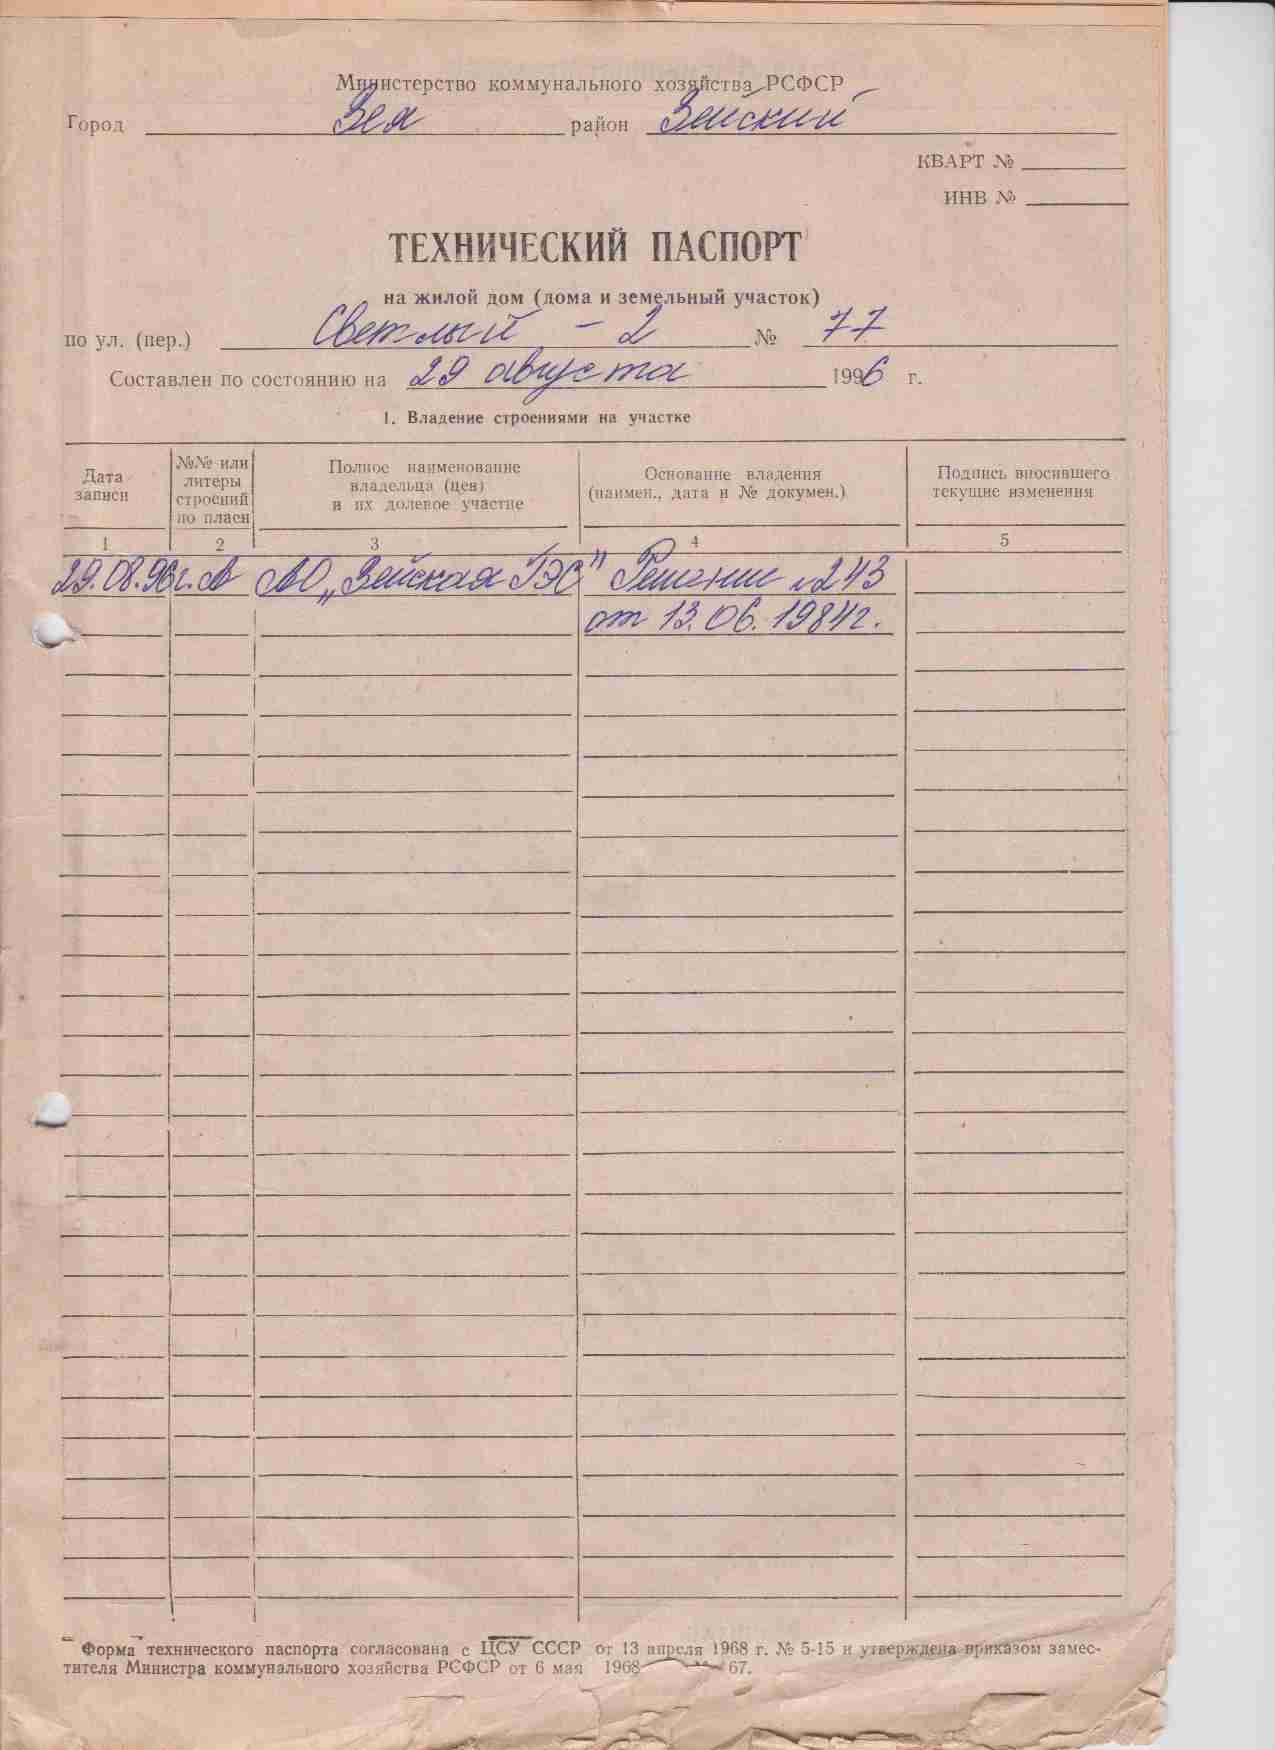 Министерство коммунального хозяйства РСФСР
Город Зея район Зейский
КВАРТ №
ИНВ №
ТЕХНИЧЕСКИЙ ПАСПОРТ
на жилой дом (дома и земельный участок)
по ул. (пер.) Светлый - 2 № 77
Составлен по состоянию на 29 августа 1996 г.
1. Владение строениями на участке
Дата записи
№№ или литеры строений по плаен
Полное наименование владельца (цев) и их долевое участие
Основание владения (наимен., дата и № докумен.)
Подпись вносившего текущие изменения
1 2 3 4 5
29.08.96г. А АО „Зейская ГЭС" Решение №243
от 13.06.1984г.
Форма технического паспорта согласована с ЦСУ СССР от 13 апреля 1968 г. № 5-15 и утверждена приказом замес-
тителя Министра коммунального хозяйства РСФСР от 6 мая 1968 67.